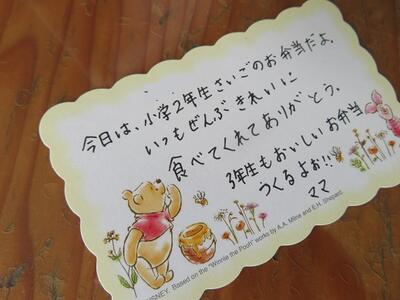 今日は、小学2年生さいごのお弁当だよ。
いつもぜんぶきれいに
食べてくれてありがとう。
3年生もおいしいお弁当
つくるよぉ!!
ママ
DISNEY. Based on the "Winnie the Pooh" works by A.A. Milne and E.H. Shepard.